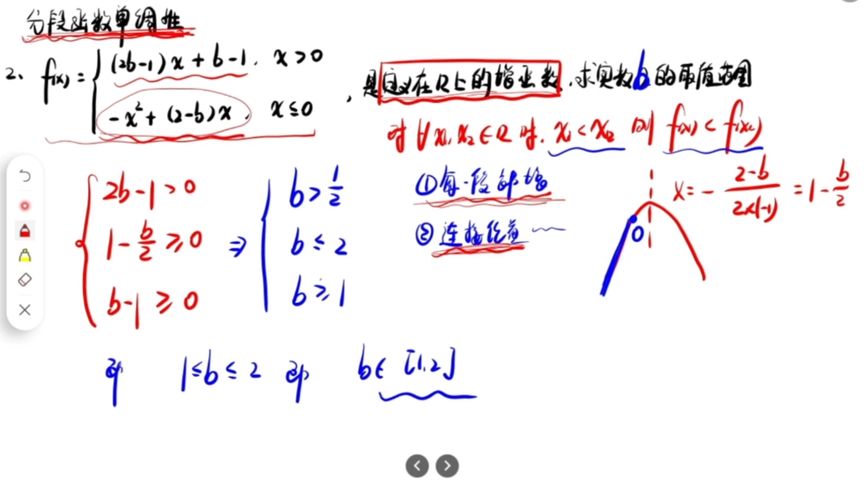 分段函数单调性
2、 f(x) = { (2b-1)x + b-1, x > 0
-x² + (2-b)x, x ≤ 0
, 是定义在R上的增函数, 求实数b的取值范围
对 ∀ x₁, x₂ ∈ R 时, x₁ < x₂ 则 f(x₁) < f(x₂)
① 每一段都增
② 连接
x = - (2-b)/(2×(-1)) = 1 - b/2
0
{ 2b-1 > 0
1 - b/2 ≥ 0
b-1 ≥ 0
⇒ { b > 1/2
b ≤ 2
b ≥ 1
即 1 ≤ b ≤ 2 即 b ∈ [1,2]